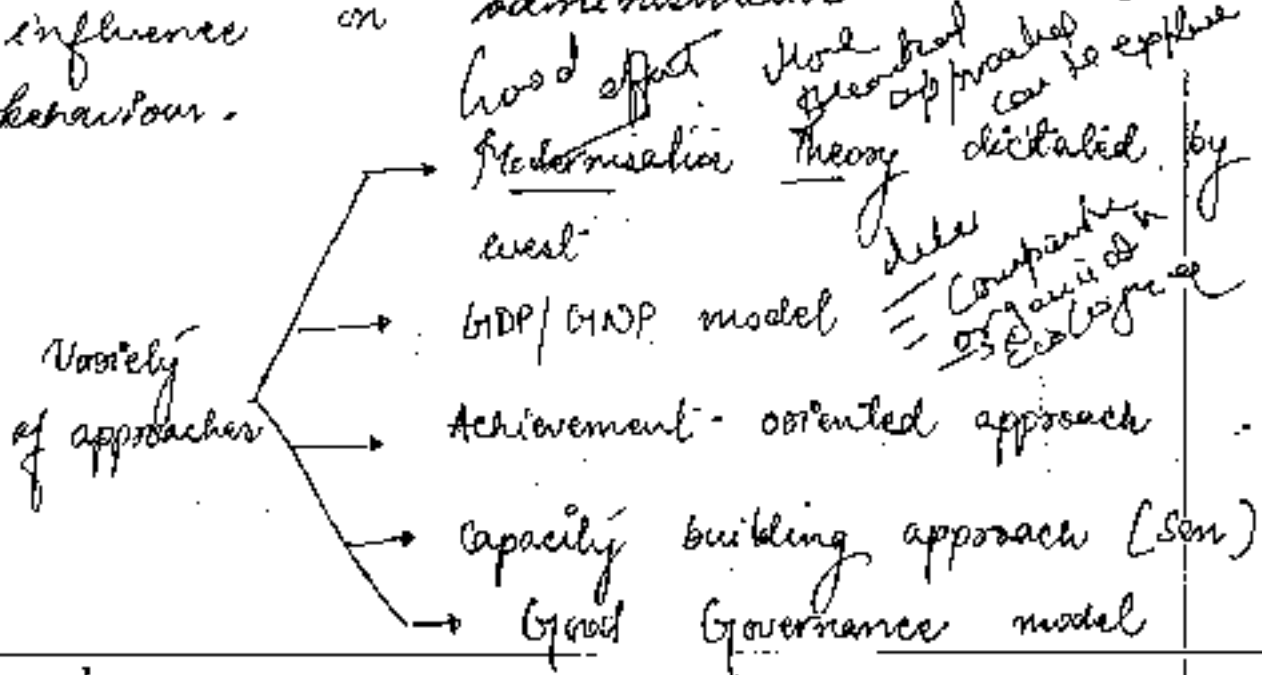 influence on
behaviour.
Good effort
More
approaches
can be explored
Modernisation Theory dictated by
west
GDP/GNP model
Comparative
organisation
Ecological
Variety
of approaches
Achievement-oriented approach
Capacity building approach (Sen)
Good Governance model